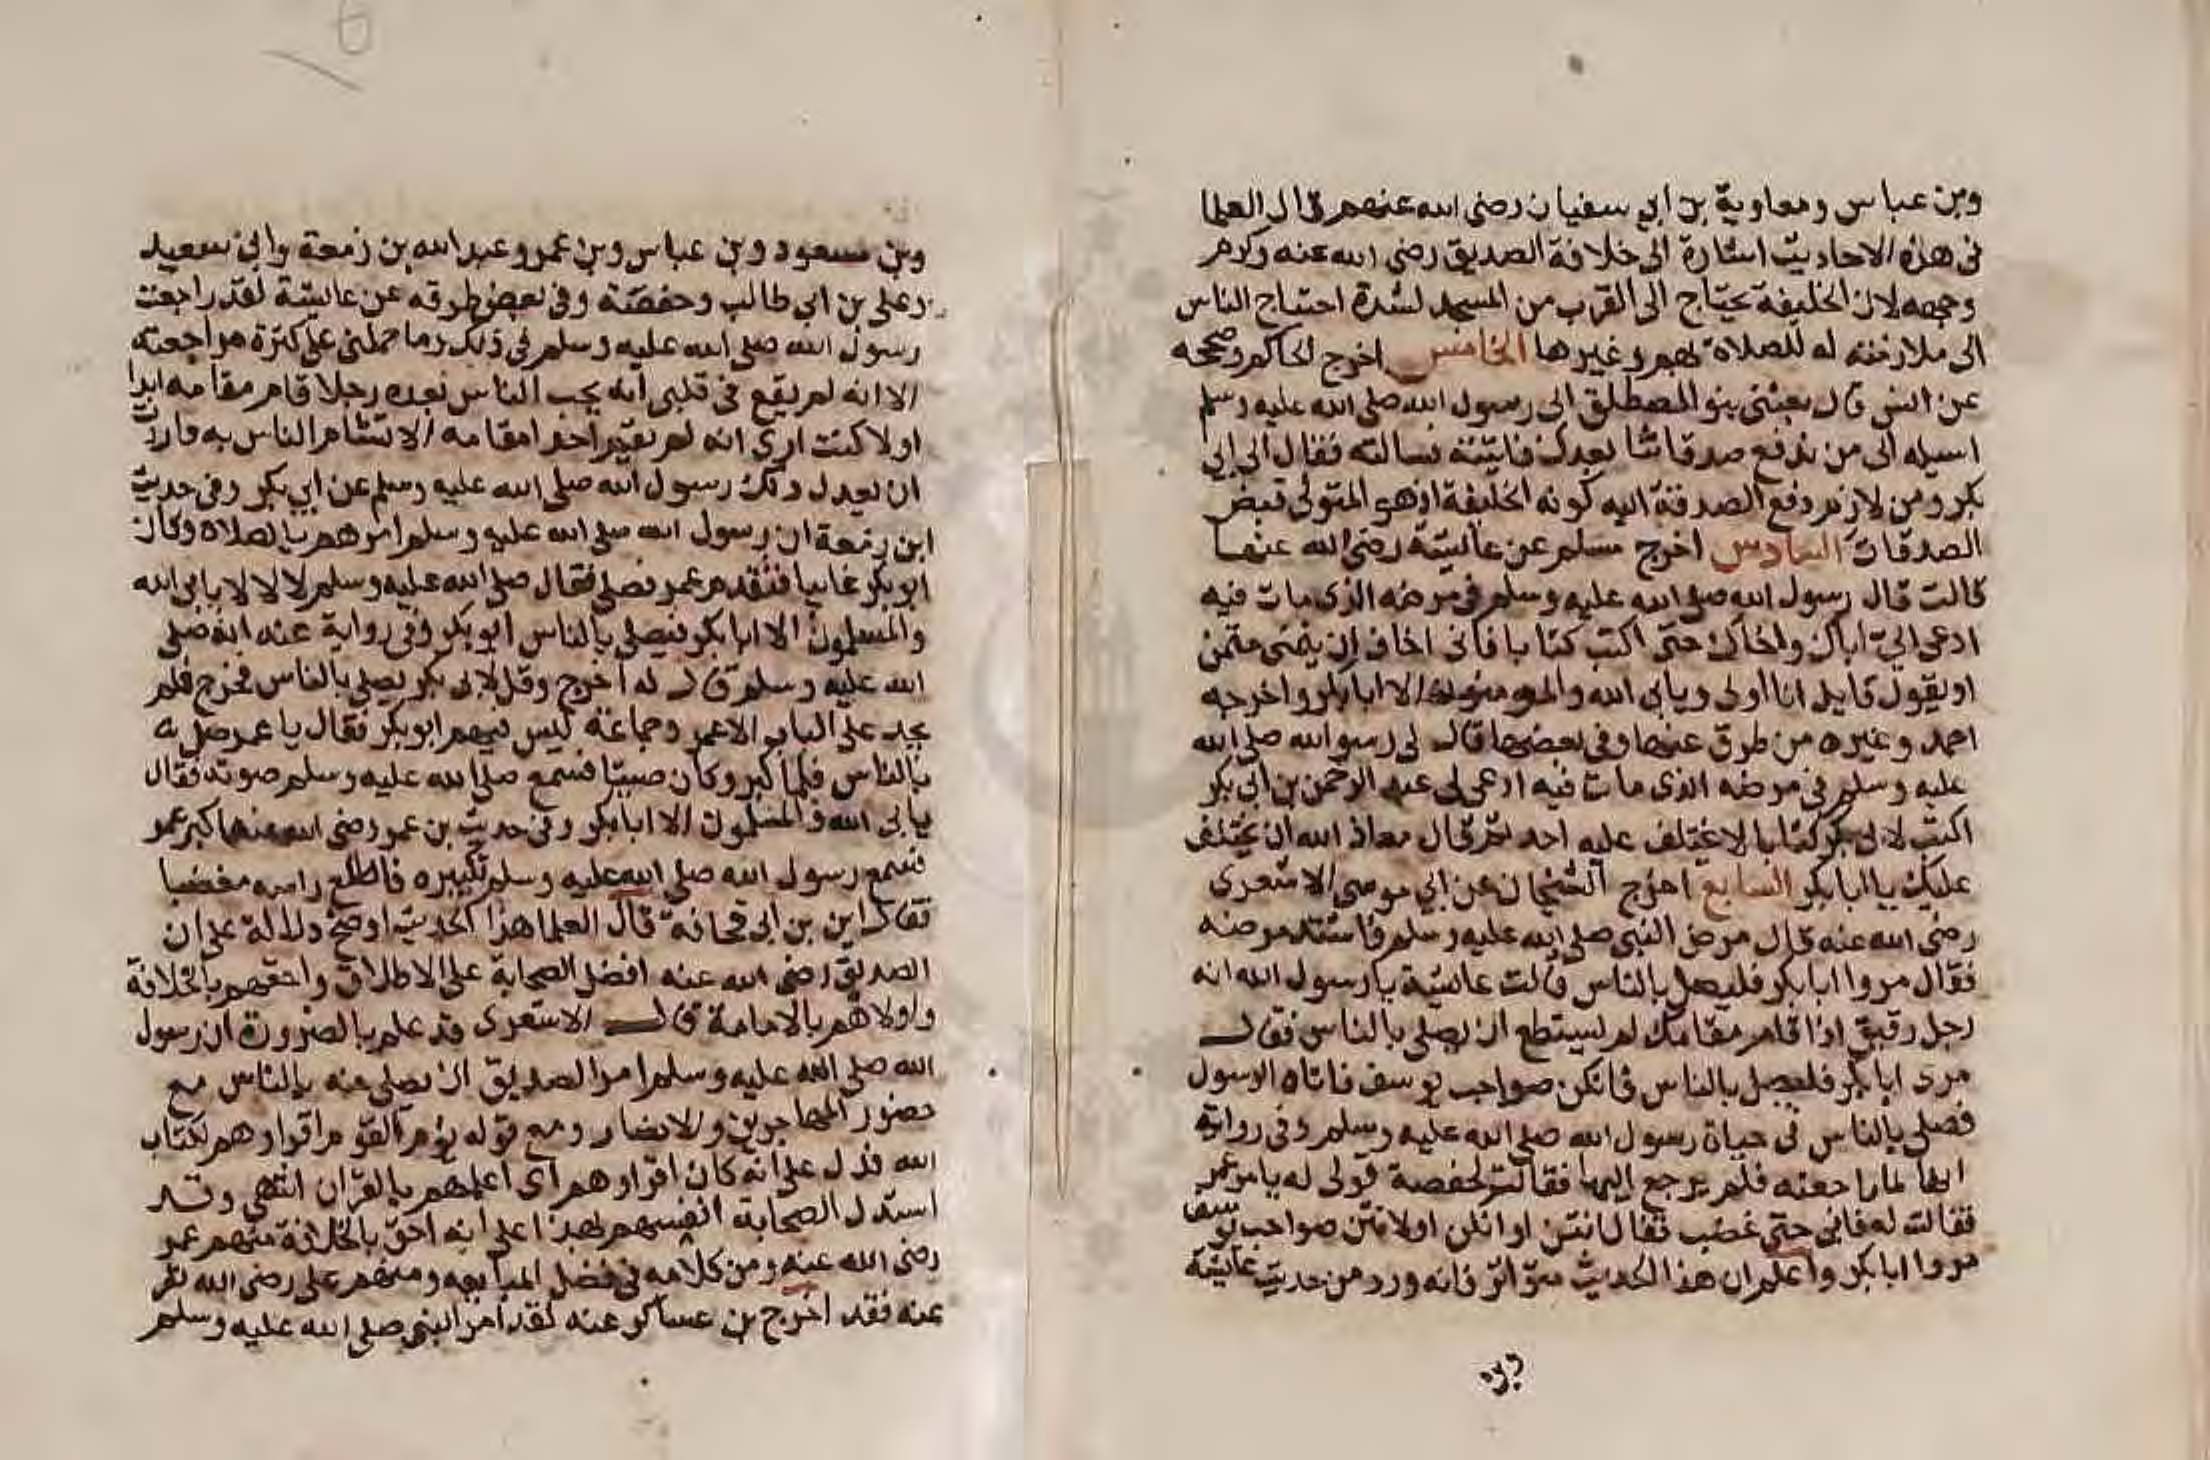 وبن عباس ومعاوية بن ابي سفيان رضي الله عنهم قال العلما
في هذه الاحاديث اشارة الى خلافة الصديق رضي الله عنه وكرم
وجهه لان الخليفة يحتاج الى القرب من المسجد لشدة احتياج الناس
الى ملازمته له للصلاة بهم وغيرها الخامس اخرج الحاكم وصححه
عن انس قال بعثني بنو المصطلق الى رسول الله صلى الله عليه وسلم
اسيله الى من ندفع صدقاتنا بعدك فاتيته فسالته فقال الى ابي
بكر ومن لازم دفع الصدقة اليه كونه الخليفة اذ هو المتولى قبض
الصدقات السادس اخرج مسلم عن عايشة رضي الله عنها
قالت قال رسول الله صلى الله عليه وسلم في مرضه الذي مات فيه
ادعي الي اباك واخاك حتى اكتب كتابا فاني اخاف ان يتمنى متمن
او يقول قايل انا اولى ويابى الله والمومنون الا ابا بكر واخرجه
احمد وغيره من طرق عنها وفي بعضها قال لي رسول الله صلى الله
عليه وسلم في مرضه الذي مات فيه ادعي لي عبد الرحمن بن ابي بكر
اكتب لابي بكر كتابا لا يختلف عليه احد ثم قال معاذ الله ان يختلف
عليك يا ابا بكر السابع اخرج الشيخان عن ابي موسى الاشعري
رضي الله عنه قال مرض النبي صلى الله عليه وسلم فاشتد مرضه
فقال مروا ابا بكر فليصل بالناس قالت عائشة يا رسول الله انه
رجل رقيق اذا قام مقامك لم يستطع ان يصلي بالناس فقال
مري ابا بكر فليصل بالناس فانكن صواحب يوسف فاتاه الرسول
فصلى بالناس في حياة رسول الله صلى الله عليه وسلم وفي رواية
انها لما راجعته فلم يرجع اليها فقالت لحفصة قولي له يامر عمر
فقالت له فابى حتى غضب فقال انتن او انكن او لانتن صواحب يوسف
مروا ابا بكر واعلم ان هذا الحديث متواتر فانه ورد من حديث عايشة
وبن مسعود وبن عباس وبن عمر وعبد الله بن زمعة وابي سعيد
وعلي بن ابي طالب وحفصة وفي بعض طرقه عن عايشة لقد راجعت
رسول الله صلى الله عليه وسلم في ذلك وما حملني على كثرة مراجعته
الا انه لم يقع في قلبي انه يحب الناس بعده رجلا قام مقامه ابدا
او لا كنت ارى انه لم يقيم احد مقامه الا تشام الناس به فاردت
ان يعدل ذلك رسول الله صلى الله عليه وسلم عن ابي بكر وفي حديث
ابن زمعة ان رسول الله صلى الله عليه وسلم امرهم بالصلاة وكان
ابو بكر غايبا فتقدم عمر فصلى فقال صلى الله عليه وسلم لا لا لا يابى الله
والمسلمون الا ابا بكر فيصلي بالناس ابو بكر وفي رواية عنه انه صلى
الله عليه وسلم قال له اخرج وقل لابي بكر يصلي بالناس فخرج فلم
يجد على الباب الا عمر وجماعة ليس فيهم ابو بكر فقال يا عمر صل
بالناس فلما كبر وكان صيتا فسمع صلى الله عليه وسلم صوته فقال
يابى الله والمسلمون الا ابا بكر وفي حديث بن عمر رضي الله عنهما كبر عمر
فسمع رسول الله صلى الله عليه وسلم تكبيره فاطلع راسه مغضبا
فقال اين بن ابي قحافة قال العلما هذا الحديث اوضح دلالة على ان
الصديق رضي الله عنه افضل الصحابة على الاطلاق واحقهم بالخلافة
واولاهم بالامامة قال الاشعري قد علم بالضرورة ان رسول
الله صلى الله عليه وسلم امر الصديق ان يصلي عنه بالناس مع
حضور المهاجرين والانصار ومع قوله يؤم القوم اقراوهم لكتاب
الله فدل على انه كان اقراوهم اي اعلمهم بالقران انتهى وقد
استدل الصحابة انفسهم بهذا على انه احق بالخلافة منهم عمر
رضي الله عنه ومن كلامه في فضل المبايعه ومنهم علي رضي الله
عنه فقد اخرج بن عساكر عنه لقد امر النبي صلى الله عليه وسلم